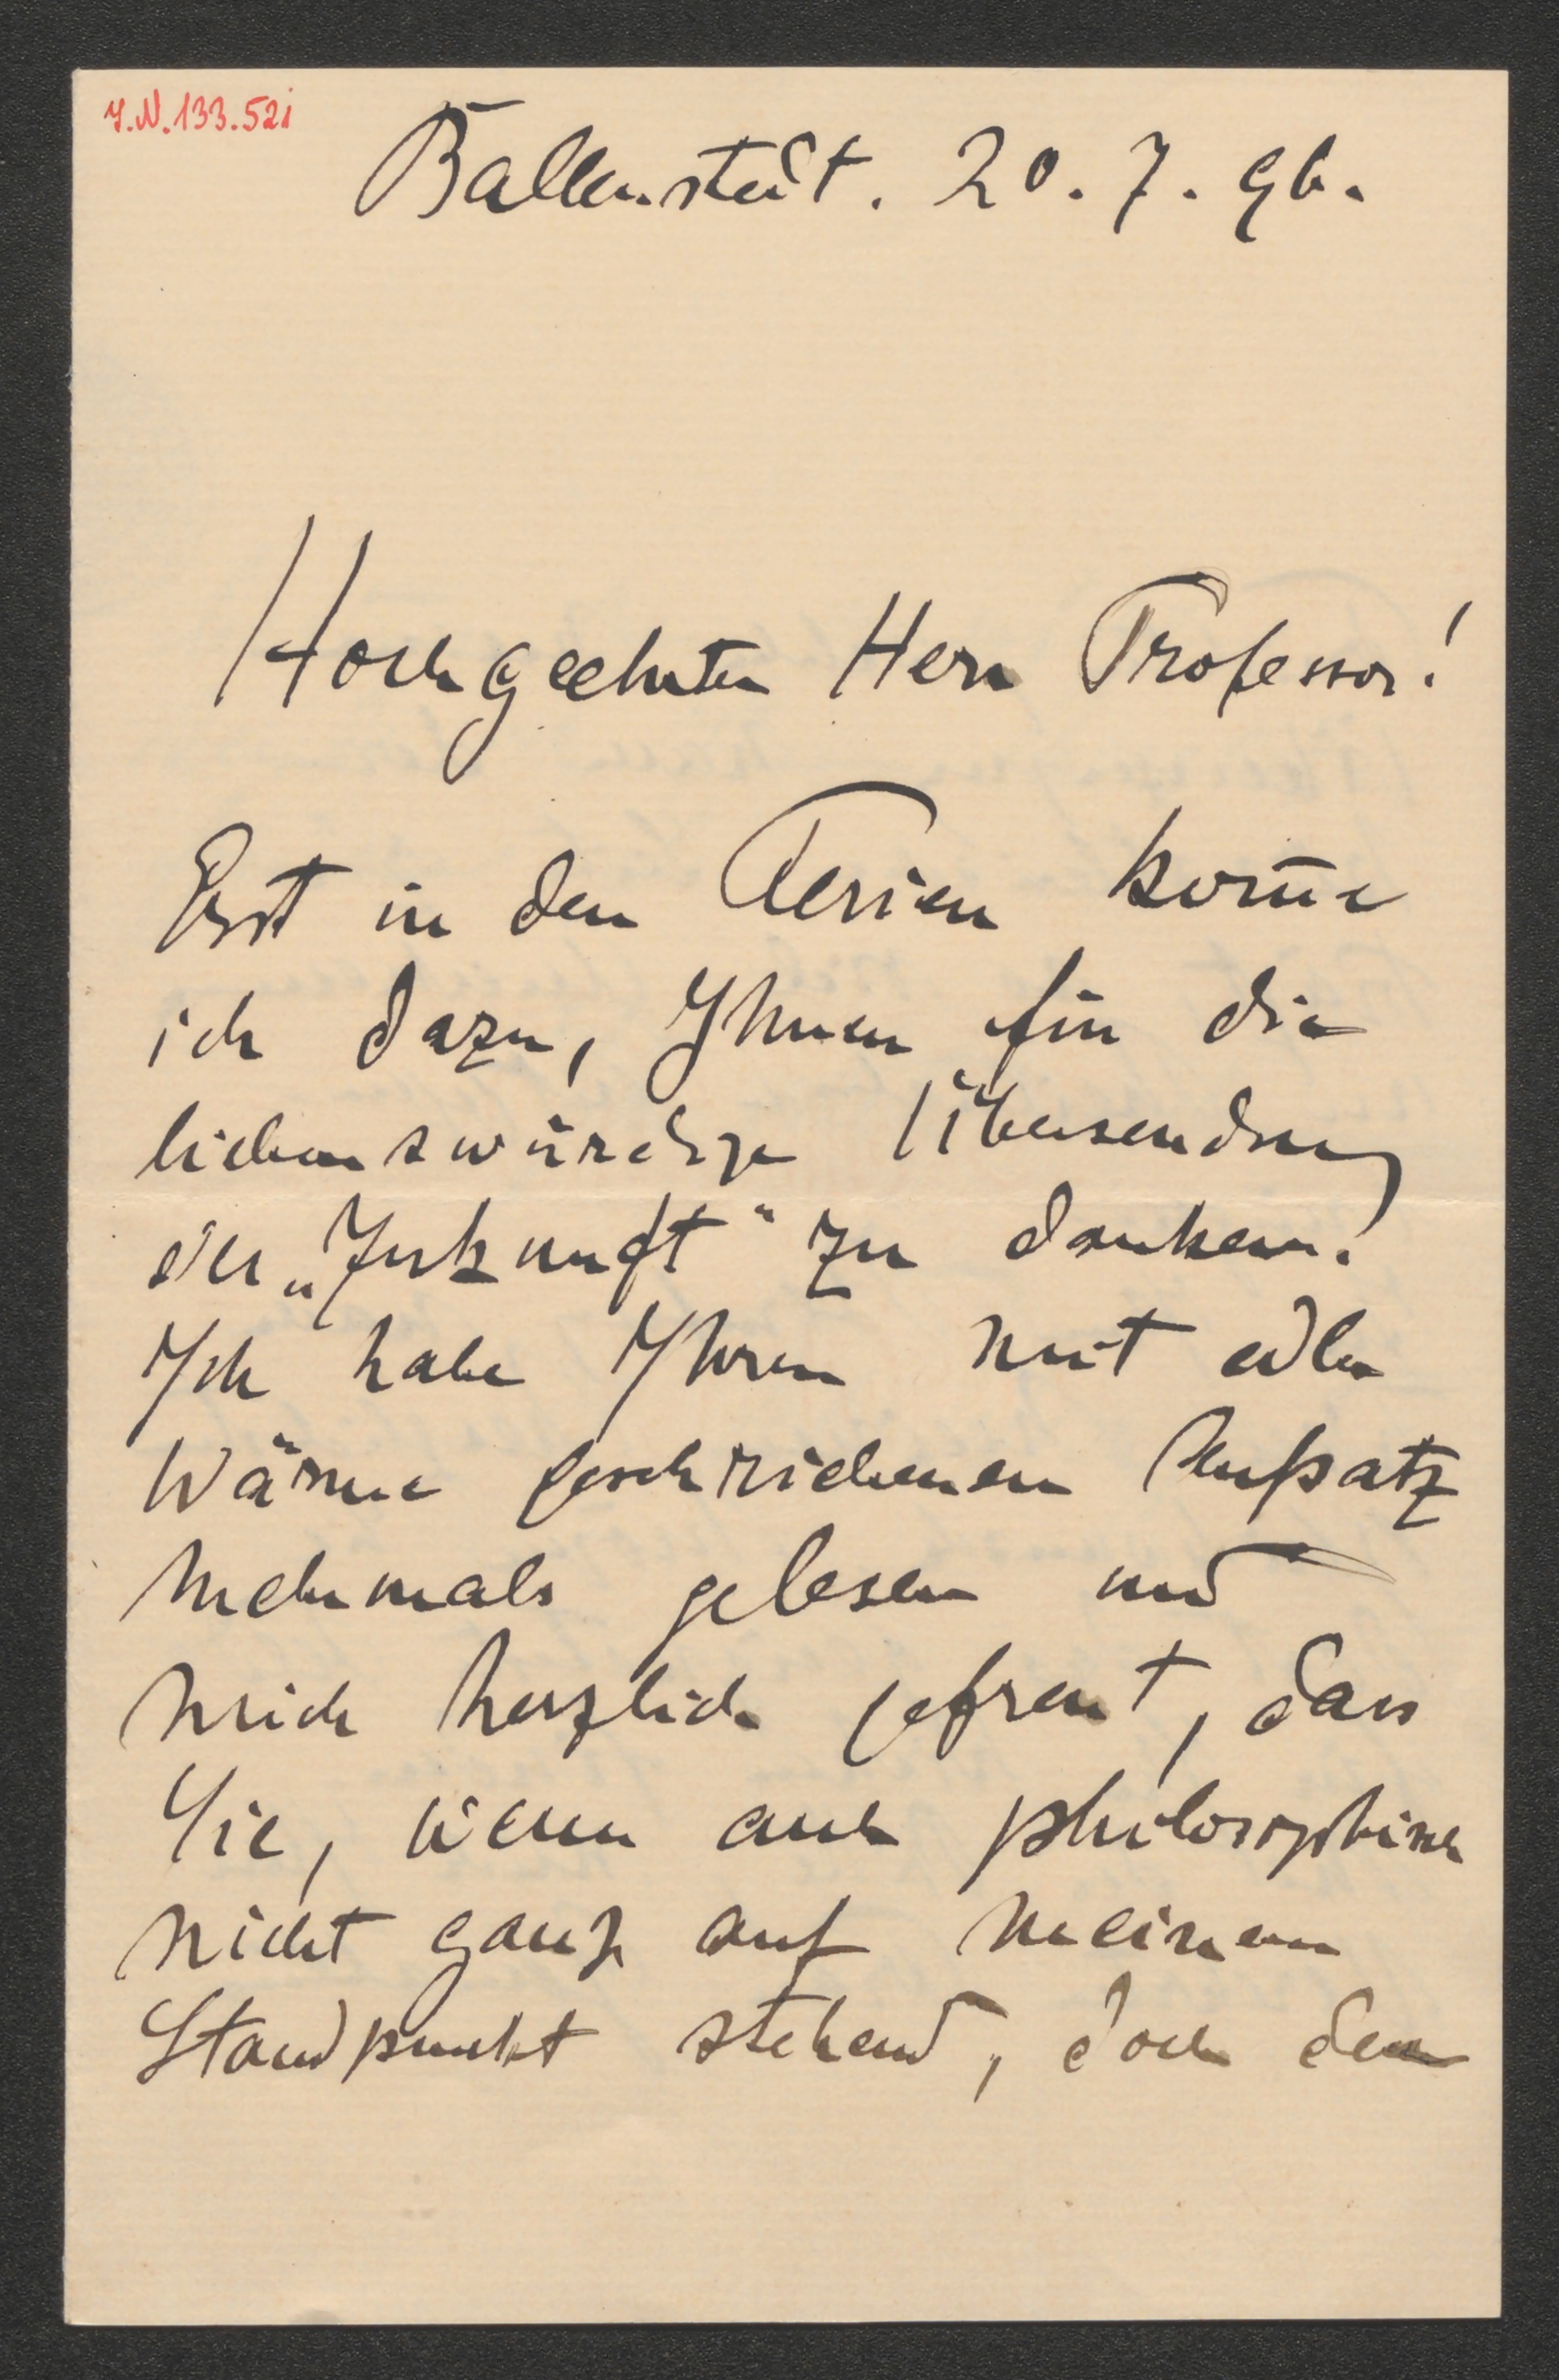 I.N. 133.521
Ballenstedt. 20. 7. 96.
Hochgeehrter Herr Professor!
Erst in den Ferien kom̄e
ich dazu, Ihnen für die
liebenswürdige Übersendung
der „Zukunft“ zu danken.
Ich habe Ihren mit edler
Wärme geschriebenen Aufsatz
mehrmals gelesen und
mich herzlich gefreut, dass
Sie, wenn auch philosophisch
nicht ganz auf meinem
Standpunkt stehend, doch den